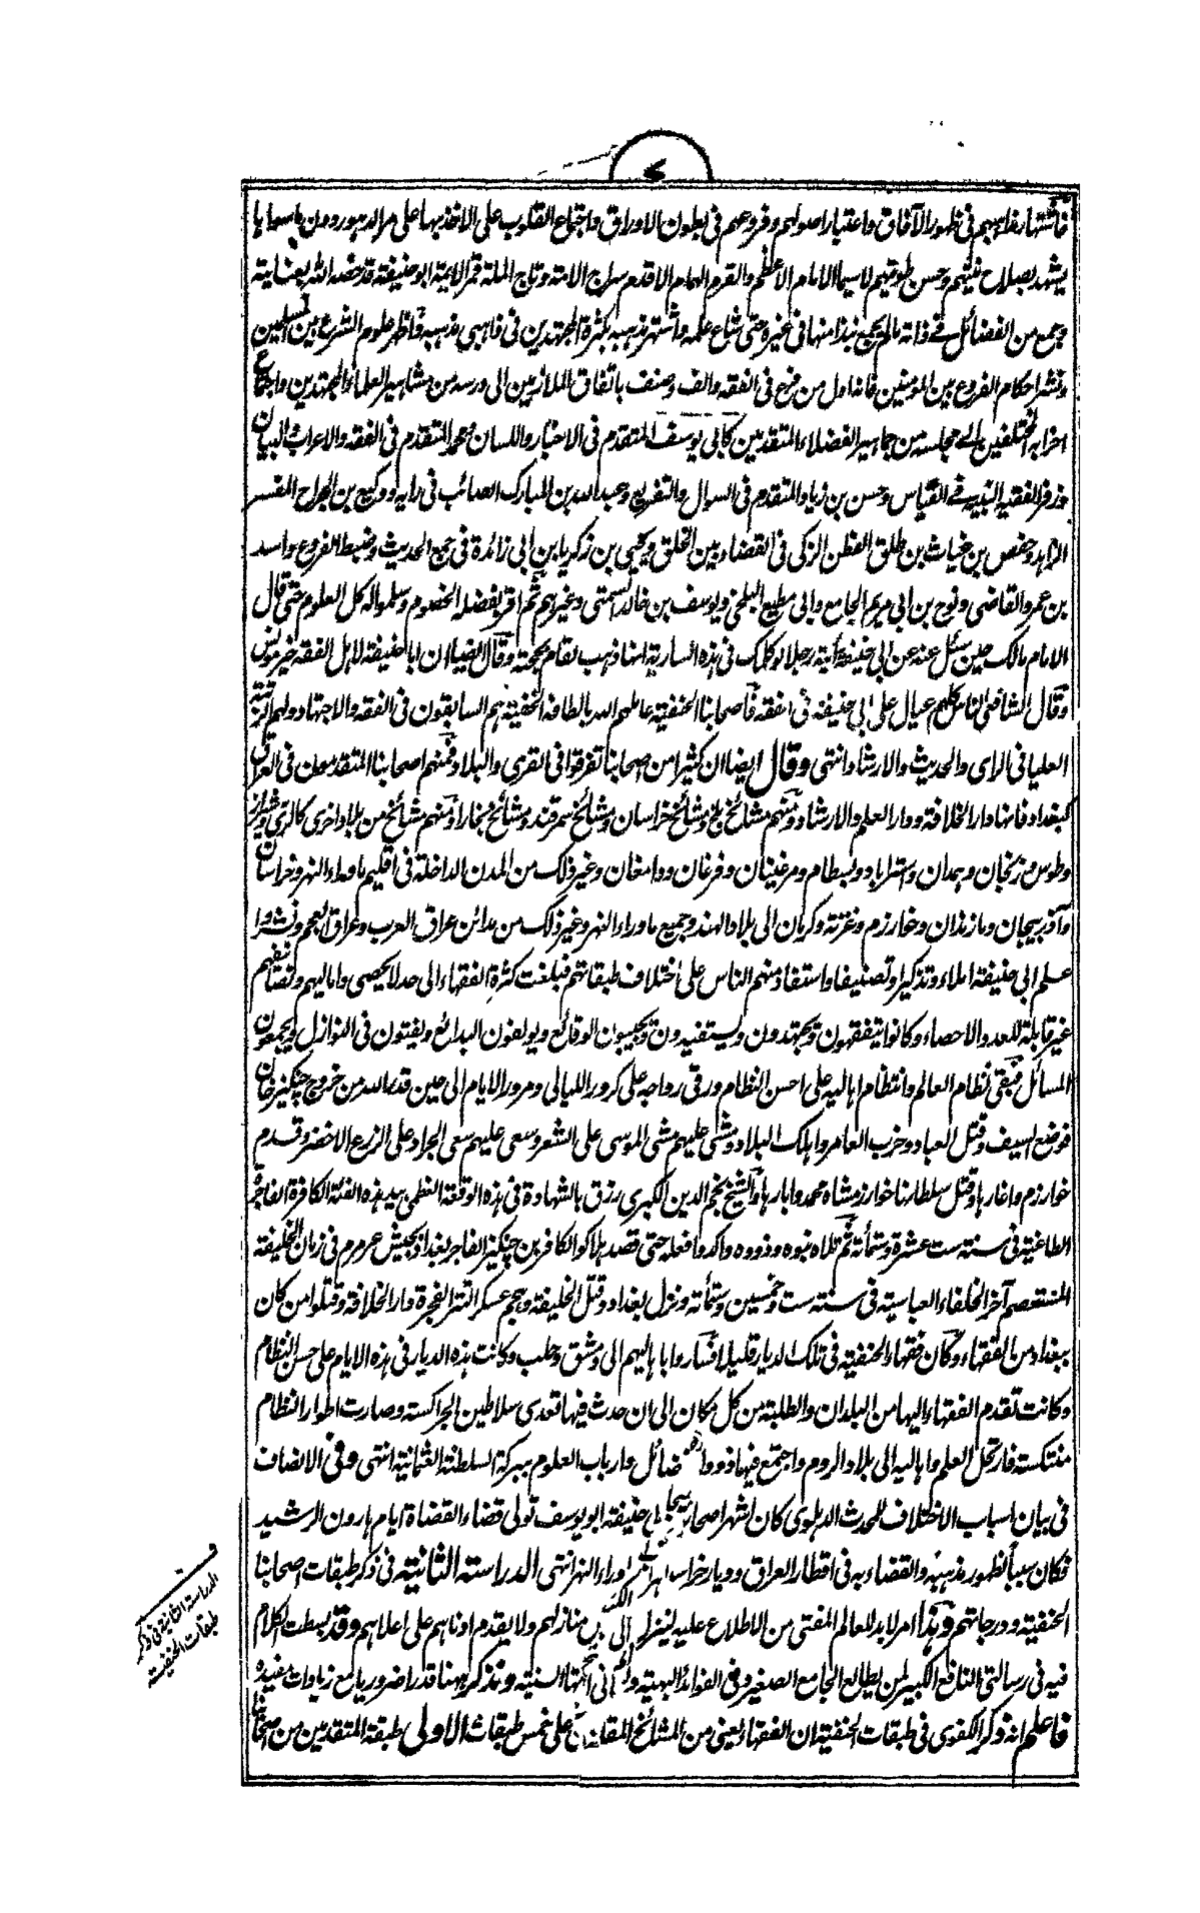 ٧
فاشتهار مذاهبهم في ظهور الآفاق واعتبار اصولهم وفروعهم في بطون الاوراق واجتماع القلوب على الاخذ بها على مر الدهور دون ما سواها
يشهد بصلاح نيتهم وحسن طويتهم لاسيما الامام الاعظم والقرم الهمام الاقدم سراج الامة وتاج الملة قمر الائمة ابو حنيفة قد خصه الله بعنايته
وجمع من الفضائل في ذاته ما لم يجمع نبذا منها في غيره حتى شاع علمه واشتهر مذهبه بكثرة المجتهدين في مذهبه فاظهر علوم الشرع بين المسلمين
ونشر احكام الفروع بين المؤمنين فانه اول من فرع في الفقه والف وصنف باتفاق الملازمين الى درسه من مشاهير العلماء المجتهدين واجتماع
احزابه المختلفين الى مجلسه من جماهير الفضلاء المتقدمين كابي يوسف المتقدم في الاخبار واللسان ومحمد المتقدم في الفقه والاعراب والبيان
وزفر الفقيه النبيه في القياس وحسن بن زياد المتقدم في السوال والتفريع وعبد الله بن المبارك الصائب في رايه ووكيع بن الجراح المفسر
الزاهد وحفص بن غياث بن طلق الفطن الزكي في القضاء بين الخلق ويحيى بن زكريا بن ابي زائدة في جمع الحديث وضبط الفروع واسد
بن عمرو القاضي ونوح بن ابي مريم الجامع وابي مطيع البلخي ويوسف بن خالد السمتي وغيرهم ثم اقر بفضله الخصوم وسلموا له كل العلوم حتى قال
الامام مالك حين سئل عنه عن ابي حنيفة رأيته رجلا لو كلمك في هذه السارية انها ذهب لقام بحجته وقال ايضا ان ابا حنيفة لاهل الفقه خير مونس
وقال الشافعي الناس كلهم عيال على ابي حنيفة في الفقه فاصحابنا الحنفية عاملهم الله بالطافه الخفية هم السابقون في الفقه والاجتهاد ولهم الرتبة
العليا في الراي والحديث والارشاد انتهى وقال ايضا ان كثيرا من اصحابنا تفرقوا في القرى والبلاد فمنهم اصحابنا المتقدمون في العراق
كبغداد فانها دار الخلافة ودار العلم والارشاد ومنهم مشائخ بلخ ومشائخ خراسان ومشائخ سمرقند ومشائخ بخارا ومنهم مشائخ من بلاد اخرى كالري وشيراز
وطوس وزنجان وهمدان واستراباد وبسطام ومرغينان وفرغان ودامغان وغير ذلك من المدن الداخلة في اقليم ما وراء النهر وخراسان
وآذربيجان ومازندان وخوارزم وغزنة وكرمان الى بلاد الهند وجميع ما وراء النهر وغير ذلك من مدائن عراق العرب وعراق العجم ونشروا
علم ابي حنيفة املاء وتذكيرا وتصنيفا واستفاد منهم الناس على اختلاف طبقاتهم فبلغت كثرة الفقهاء الى حد لا يحصى واماليهم وتصانيفهم
غير قابلة للعد والاحصاء وكانوا يتفقهون ويجتهدون ويستفيدون ويجيبون الوقائع ويولفون البدائع ويفتون في النوازل ويجمعون
المسائل فبقي نظام العالم وانتظام اهاليه على احسن النظام ورقي رواجه على كرور الليالي ومرور الايام الى حين قدر الله من خروج چنكيز خان
فوضع السيف وقتل العباد وخرب العامر واهلك البلاد ومشى عليهم مشي الموسى على الشعر وسعى عليهم سعي الجراد على الزرع الاخضر وقدم
خوارزم واغارها وقتل سلطانها خوارزمشاه محمد وابارها والشيخ نجم الدين الكبرى رزق بالشهادة في هذه الوقعة العظمى بيد هذه الفئة الكافرة الفاجرة
الطاغية في سنة ست عشرة وستمأة ثم تلاه بنوه وذووه واكدوا فعله حتى قصد هلاكو الكافر بن چنكيز الفاجر بغداد بجيش عرمرم في زمان الخليفة
المستعصم آخر الخلفاء العباسية في سنة ست وخمسين وستمأة ونزل بغداد وقتل الخليفة وهجم عسكر التتر الفجرة دار الخلافة وقتلوا من كان
ببغداد من الفقهاء وكان فقهاء الحنفية في تلك الديار قليلا فساروا باهاليهم الى دمشق وحلب وكانت هذه الديار في هذه الايام على حسن النظام
وكانت تقدم الفقهاء اليها من البلدان والطلبة من كل مكان الى ان حدث فيها تعدي سلاطين الجراكسة وصارت اطوار النظام
منتكسة فارتحل العلم واهاليه الى بلاد الروم واجتمع فيها ذوو الفضائل وارباب العلوم ببركة السلطنة العثمانية انتهى وفي الانصاف
في بيان اسباب الاختلاف للمحدث الدهلوي كان اشهر اصحاب ابي حنيفة ابو يوسف تولى قضاء القضاة ايام هارون الرشيد
فكان سببا لظهور مذهبه والقضاء به في اقطار العراق وديار خراسان وما وراء النهر انتهى الدراسة الثانية في ذكر طبقات اصحابنا
الحنفية ودرجاتهم وهذا امر لابد للعالم المفتي من الاطلاع عليه لينزل الناس منازلهم ولا يقدم ادناهم على اعلاهم وقد بسطت الكلام
فيه في رسالتي النافع الكبير لمن يطالع الجامع الصغير وفي الفوائد البهية وتعليقاتها السنية ونذكر ههنا قدرا ضروريا مع زيادات مفيدة
فاعلم انه ذكر الكفوي في طبقات الحنفية ان الفقهاء يعني من المشائخ المقلدين على خمس طبقات الاولى طبقة المتقدمين من اصحابنا
الدراسة الثانية في ذكر
طبقات الحنفية